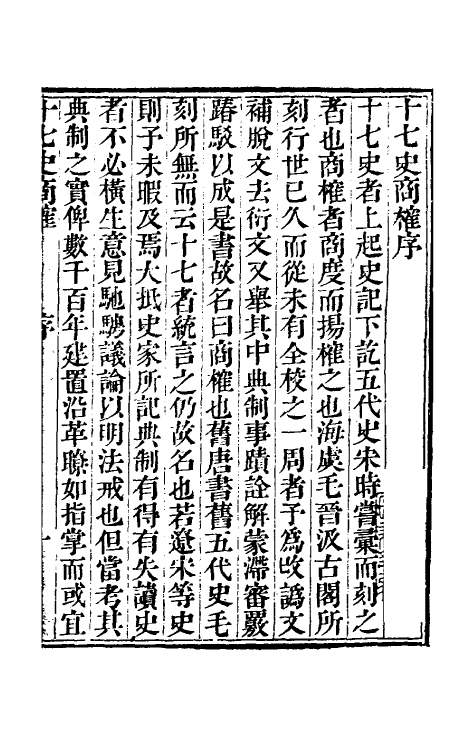 十七史商榷序
十七史者上起史記下訖五代史宋時嘗彙而刻之
者也商榷者商度而揚榷之也海虞毛晉汲古閣所
刻行世已久而從未有全校之一周者予爲改譌文
補脫文去衍文又舉其中典制事蹟詮解蒙滯審覈
踳駁以成是書故名曰商榷也舊唐書舊五代史毛
刻所無而云十七者統言之仍故名也若遼宋等史
則予未暇及焉大抵史家所記典制有得有失讀史
者不必橫生意見馳騁議論以明法戒也但當考其
典制之實俾數千百年建置沿革瞭如指掌而或宜
十七史商榷 序 一